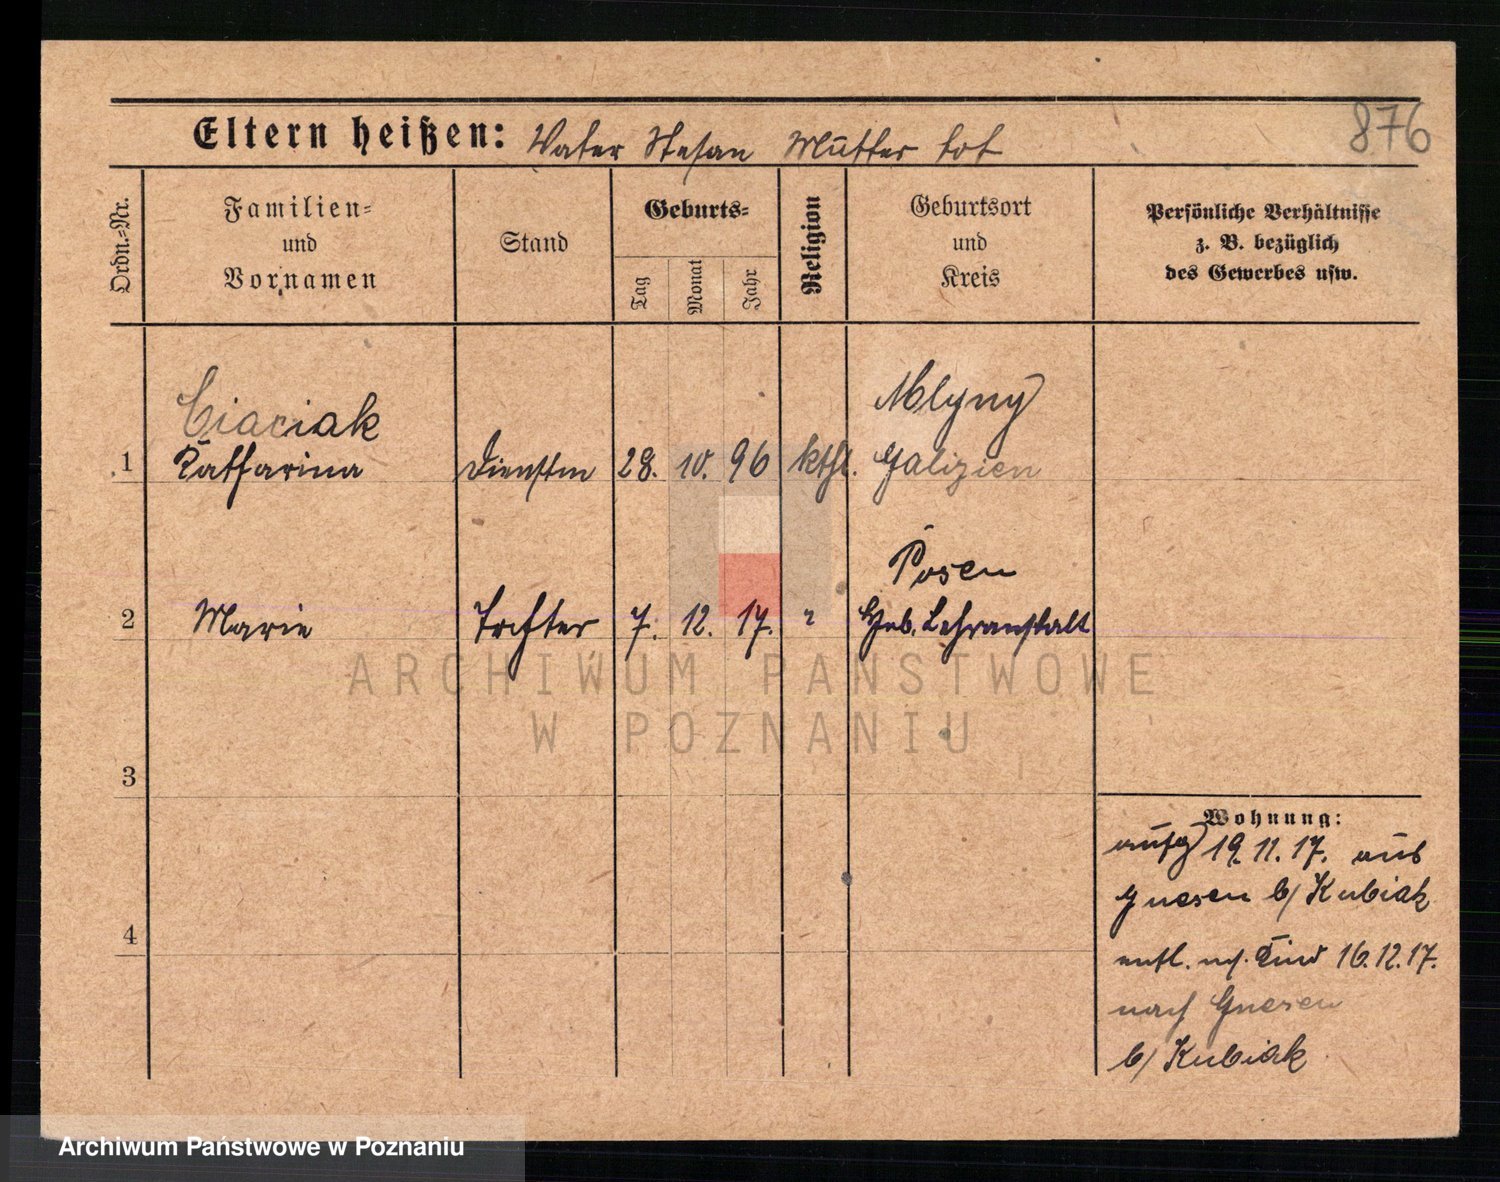 876
Eltern heißen: Vater Stefan Mutter tot
Ordn.-Nr.
Familien-
und
Vornamen
Stand
Geburts-
Tag
Monat
Jahr
Religion
Geburtsort
und
Kreis
Persönliche Verhältnisse
z. B. bezüglich
des Gewerbes usw.
Ciaciak
Mlyny
1 Katharina Dienstm 28. 10. 96 kthl. Galizien
Posen
2 Marie Tochter 7. 12. 17. " Heb. Lehranstalt
ARCHIWUM PAŃSTWOWE
W POZNANIU
3
Wohnung:
aufg 19.11.17. aus
Gnesen b/ Kubiak
4
entl. m. Kind 16.12.17.
nach Gnesen
b/ Kubiak
Archiwum Państwowe w Poznaniu